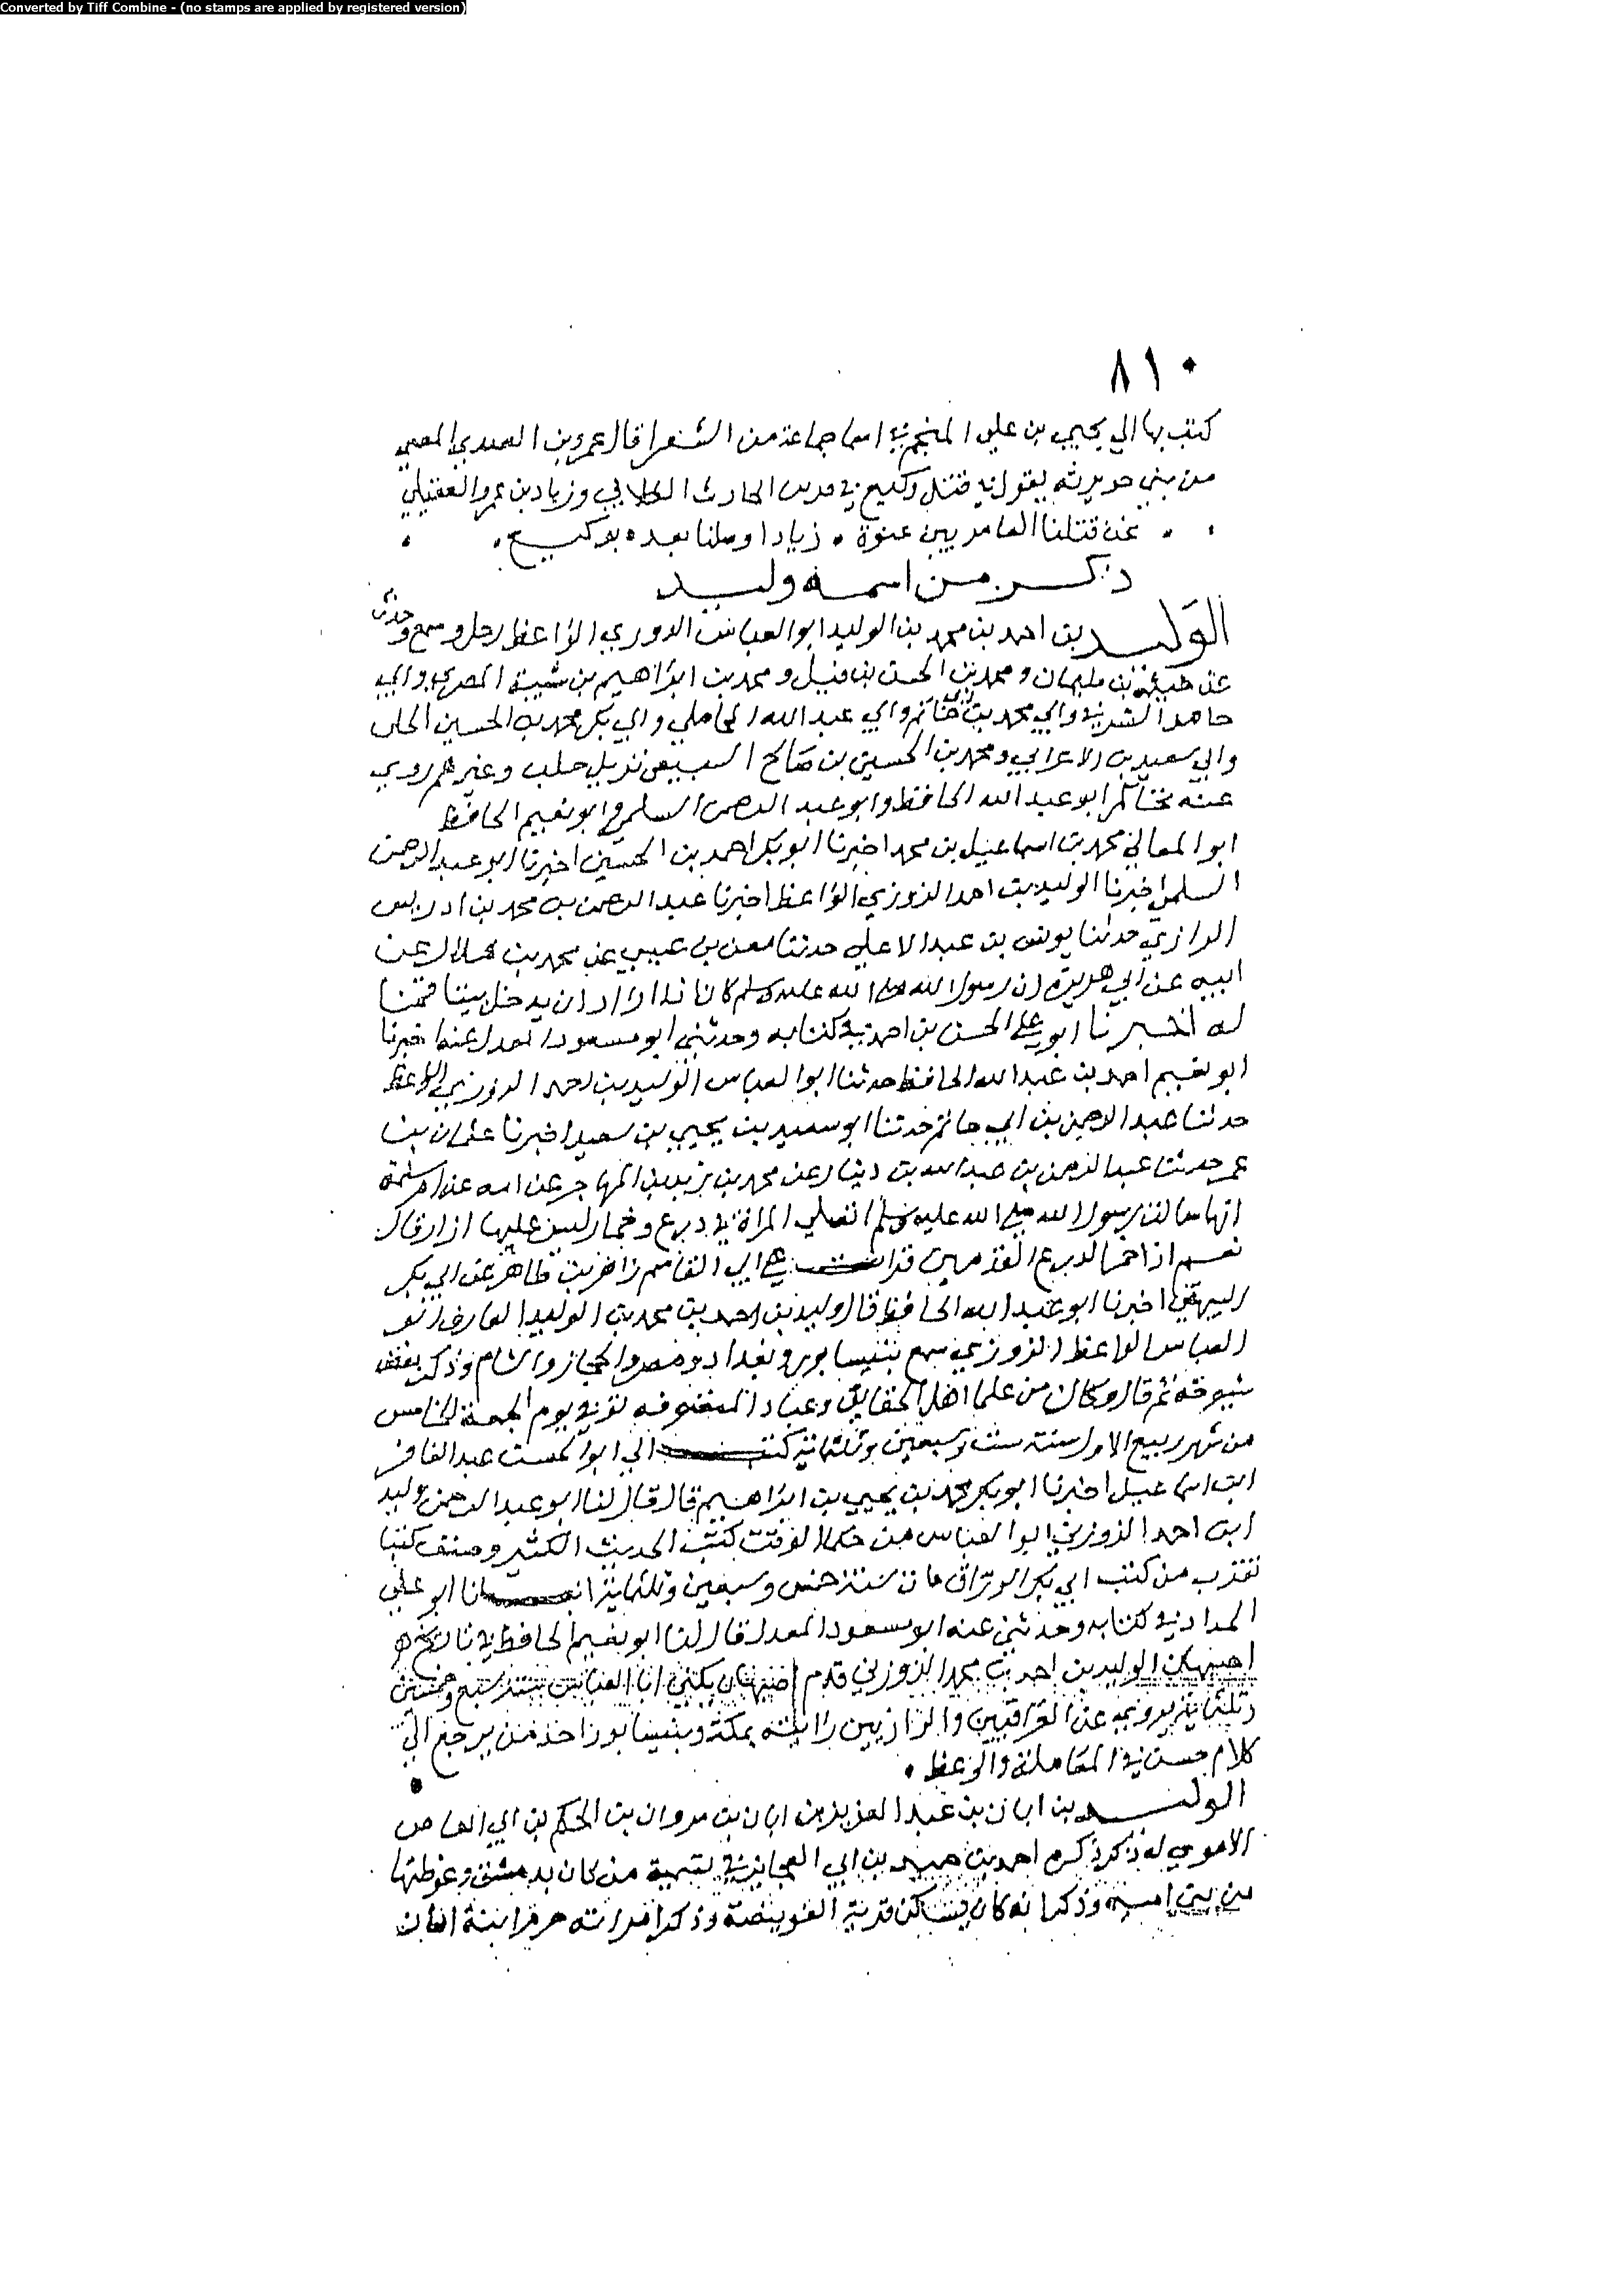 Converted by Tiff Combine - (no stamps are applied by registered version)
٨١٠
كتب بها الي يحيي بن علي المنجم في اسما جماعة من الشعرا قال عمرو بن العبدي
من بني حويرثه يقول في قتل وكيع الحارث الكلابي وزياد بن عمرو العقيلي
نحن قتلنا العامريين عنوة زيادا وملنا بعده بوكيع
ذكر من اسمه وليد
الوليد بن احمد بن محمد بن الوليد ابو العباس الزوزني الواعظ رحل وسمع وحدث
عن خيثمة بن سليمان ومحمد بن الحسن بن فيل ومحمد بن ابراهيم بن شيبة المصري وابي
حامد الشرقي وابي محمد بن ابي حاتم وابي عبد الله المحاملي وابي بكر محمد بن الحسين
وابي سعيد بن الاعرابي ومحمد بن الحسين بن صالح السبيعي نزيل حلب وغيرهم روي
عنه الحاكم ابو عبد الله الحافظ وابو عبد الرحمن السلمي وابو نعيم الحافظ
ابو المعالي محمد بن اسماعيل بن محمد اخبرنا ابو بكر احمد بن الحسين اخبرنا ابو عبد الرحمن
السلمي اخبرنا الوليد بن احمد الزوزني الواعظ اخبرنا عبد الرحمن بن محمد بن ادريس
الرازي حدثنا يونس بن عبد الاعلي حدثنا معن بن عيسي عن محمد بن هلال عن
ابيه عن ابي هريرة ان رسول الله صلي الله عليه وسلم كان اذا اراد ان يدخل بيتا قمنا
له اخبرنا ابو علي الحسن بن احمد في كتابه وحدثني ابو مسعود المعدل عنه اخبرنا
ابو نعيم احمد بن عبد الله الحافظ حدثنا ابو العباس الوليد بن احمد الزوزني الواعظ
حدثنا عبد الرحمن بن ابي حاتم حدثنا ابو سعيد بن يحيي بن سعيد اخبرنا عثمان بن
عمر حدثنا عبد الرحمن بن عبد الله بن دينار عن محمد بن زيد بن المهاجر عن امه عن ام سلمة
انها سالت رسول الله صلي الله عليه وسلم اتصلي المراة في درع وخمار ليس عليها ازار قال
نعم اذا خمر الدرع القدمين قرات علي ابي القاسم زاهر بن طاهر عن ابي بكر
البيهقي اخبرنا ابو عبد الله الحافظ قال وليد بن احمد بن محمد بن الوليد العارف ابو
العباس الواعظ الزوزني سمع بنيسابور وبغداد ومصر والحجاز والشام وذكر بعض
شيوخه ثم قال وكان من علما اهل الحقايق وعباد المتصوفه توفي يوم الجمعة الخامس
من شهر ربيع الاول سنة ست وسبعين وثلثماية كتب الي ابو الحسن عبد الغافر
ابن اسماعيل اخبرنا ابو بكر محمد بن يحيي بن ابراهيم قال قال لنا ابو عبد الرحمن وليد
ابن احمد الزوزني ابو العباس من حكما الوقت كتب الحديث الكثير وصنف كتبا
تقرب من كتب ابي بكر الوراق مات سنة خمس وسبعين وثلثماية انبانا ابو علي
الحداد في كتابه وحدثني عنه ابو مسعود المعدل قال لنا ابو نعيم الحافظ في تاريخ
اصبهان الوليد بن احمد بن محمد الزوزني قدم اصبهان يكني ابا العباس سنة سبع وخمسين
وثلثماية يروي عن العراقيين والرازيين رايته بمكة وبنيسابور احد من يرجع الي
كلام حسن في المعاملة والوعظ
الوليد بن ابان بن عبد العزيز بن ابان بن مروان بن الحكم بن ابي العاص
الاموي له ذكر ذكره احمد بن حميد بن ابي العجايز في تسمية من كان بدمشق وغوطتها
من بني امية وذكر انه كان يسكن قرية وذكر امراته ابنة ابان